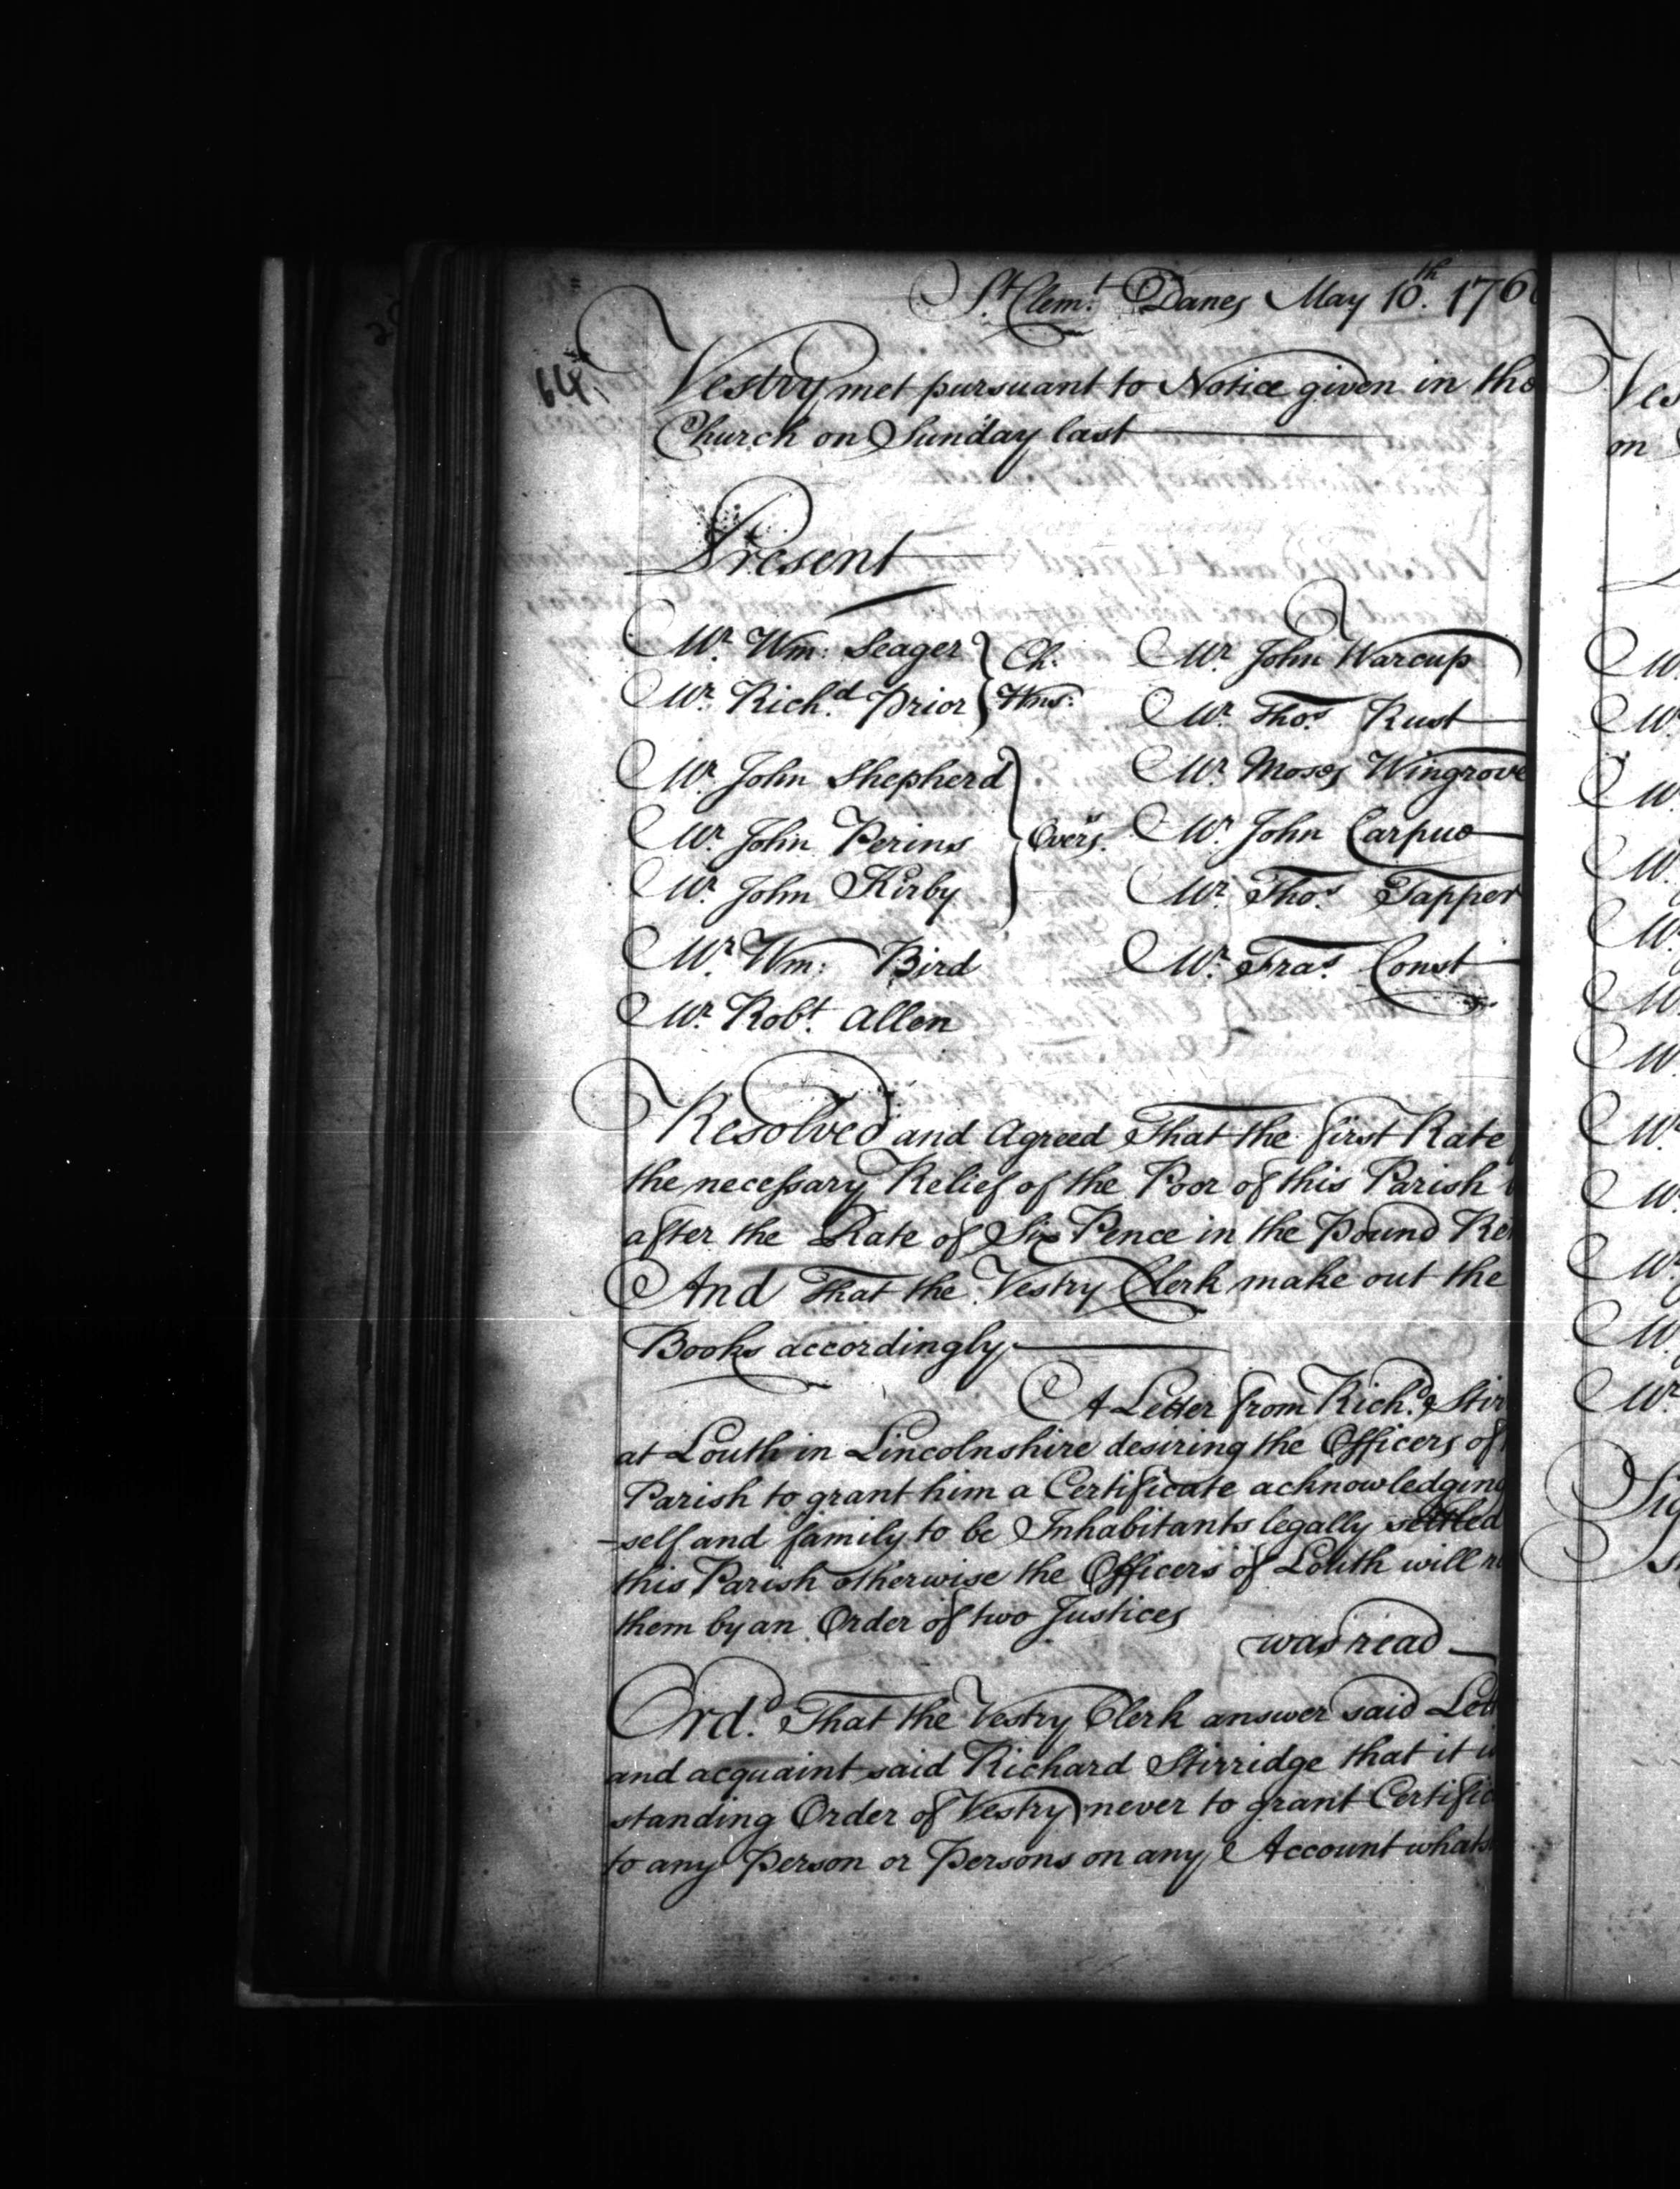 St. Clemt. Danes May 10th. 176
64
Vestry met pursuant to Notice given in the
Church on Sunday last
Present
Mr. Wm: Seager } Ch:
Mr. Richd. Prior } Wns:
Mr. John Shepherd
Mr. John Perins } Overs.
Mr. John Kirby
Mr. Wm: Bird
Mr. Robt. Allen
Mr. John Warcup
Mr. Thos. Rust
Mr. Moses Wingrove
Mr. John Carpue
Mr. Thos. Tapper
Mr. Fras. Const
Resolved and Agreed That the first Rate
the necessary Relief of the Poor of this Parish
after the Rate of Six Pence in the Pound
And That the Vestry Clerk make out the
Books accordingly
A Letter from Richd. Stir
at Louth in Lincolnshire desiring the Officers of
Parish to grant him a Certificate acknowledging
-self and family to be Inhabitants legally settled
this Parish otherwise the Officers of Louth will
them by an Order of two Justices
was read
Ord. That the Vestry Clerk answer said Let
and acquaint said Richard Stirridge that it
standing Order of Vestry never to grant Certific
to any Person or Persons on any Account whats